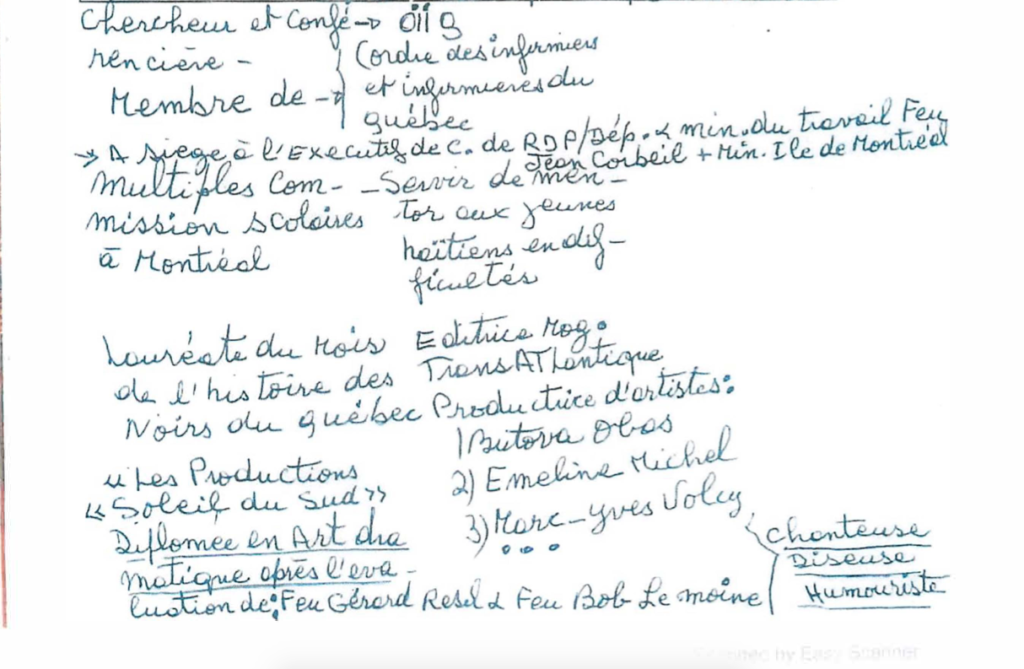 Chercheur et Confé→ öiig
rencière -
(ordre des infirmiers
Membre de →
et infirmieres du
québec
→ A siege à l'Executif de C. de RDP/Dép. & min. du travail Feu
Jean Corbeil + Min. Ile de Montréal
Multiples Com-
mission scolaires
à Montréal
- Servir de men-
tor aux jeunes
haïtiens en dif-
ficultés
Lauréate du Mois
de l'histoire des
Noirs du québec
Editrice Mag.
TransATlantique
Productrice d'artistes:
1) Butova Obas
2) Emeline Michel
3) Marc-Yves Volcy
...
" Les Productions
« Soleil du Sud »
Diflomée en Art dra
matique après l'éva-
luation de: Feu Gérard Resil & Feu Bob Lemoine
Chanteuse
Diseuse
Humouriste
by Easy Scanner